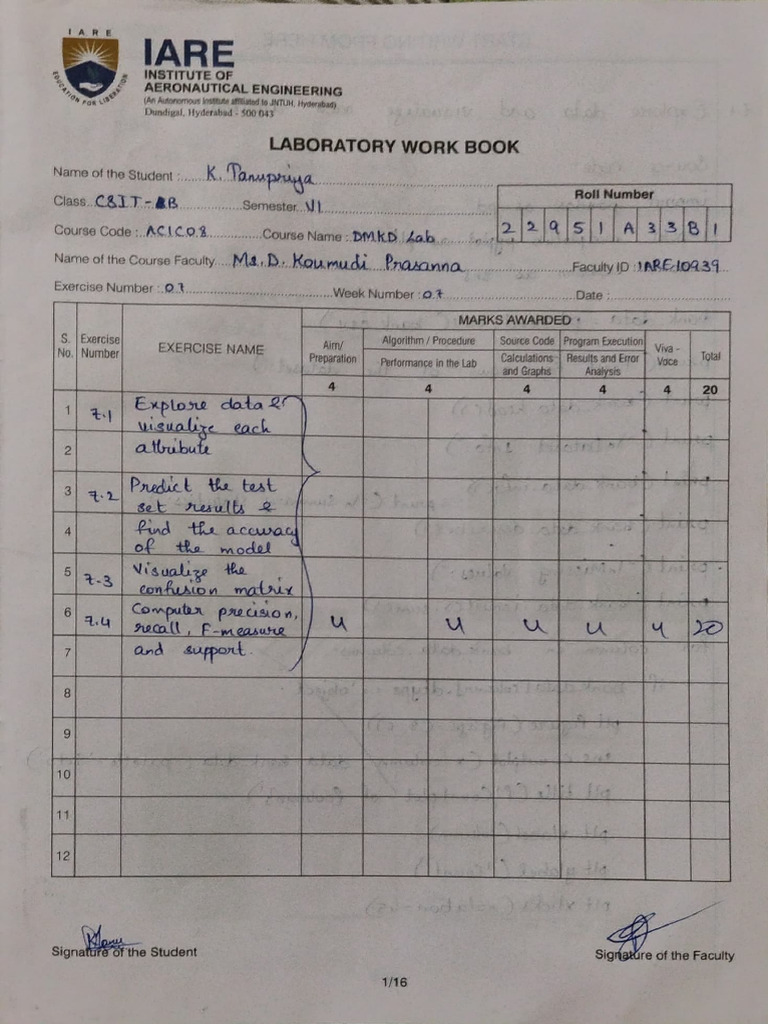 I A R E
EDUCATION FOR LIBERATION
IARE
INSTITUTE OF
AERONAUTICAL ENGINEERING
(An Autonomous Institute affiliated to JNTUH, Hyderabad)
Dundigal, Hyderabad - 500 043
LABORATORY WORK BOOK
Name of the Student : K. Tanupriya
Class CSIT-B Semester VI
Roll Number
Course Code : ACIC08 Course Name : DMKD Lab
2 2 9 5 1 A 3 3 B 1
Name of the Course Faculty Ms. D. Koumudi Prasanna Faculty ID : IARE10939
Exercise Number : 07 Week Number : 07 Date :
S. No. Exercise Number EXERCISE NAME MARKS AWARDED
Aim/ Preparation Algorithm / Procedure Source Code Program Execution Viva - Voce Total
Performance in the Lab Calculations and Graphs Results and Error Analysis
4 4 4 4 4 20
1 7.1 Explore data &
visualize each
2 attribute
3 7.2 Predict the test
set results &
4 find the accuracy
of the model
5 7.3 Visualize the
confusion matrix
6 7.4 Computer precision,
recall, F-measure 4 4 4 4 4 20
7 and support.
8
9
10
11
12
Signature of the Student Signature of the Faculty
1/16